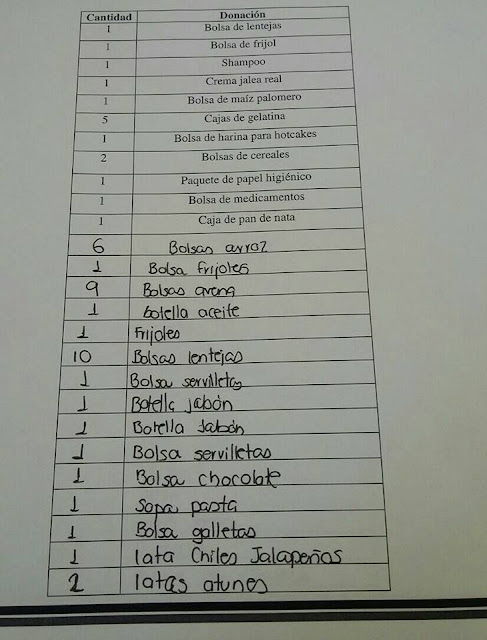 Cantidad Donación
1 Bolsa de lentejas
1 Bolsa de frijol
1 Shampoo
1 Crema jalea real
1 Bolsa de maíz palomero
5 Cajas de gelatina
1 Bolsa de harina para hotcakes
2 Bolsas de cereales
1 Paquete de papel higiénico
1 Bolsa de medicamentos
1 Caja de pan de nata
6 Bolsas arroz
1 Bolsa frijoles
9 Bolsas avena
1 botella aceite
1 Frijoles
10 Bolsas lentejas
1 Bolsa servilletas
1 Botella jabón
1 Botella Jabón
1 Bolsa servilletas
1 Bolsa chocolate
1 Sopa pasta
1 Bolsa galletas
1 lata Chiles Jalapeños
2 latas atunes